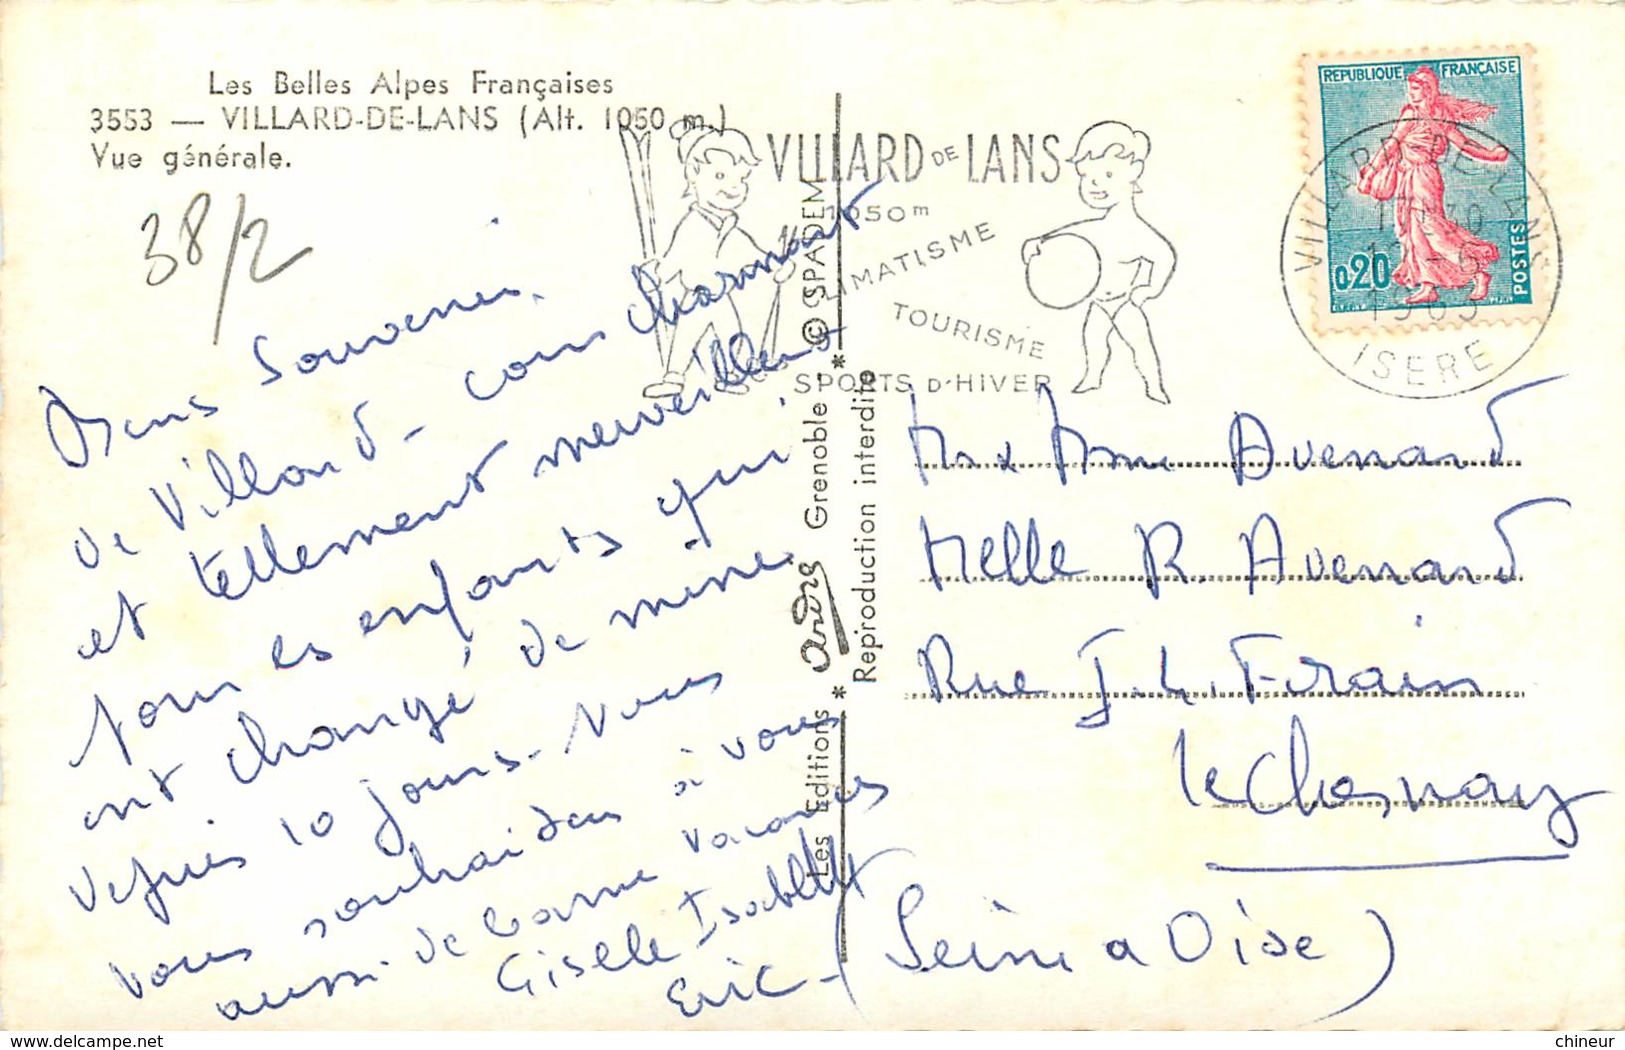 Les Belles Alpes Françaises
3553 — VILLARD-DE-LANS (Alt. 1050 m.)
Vue générale.
38/2
VILLARD DE LANS
1050m
CLIMATISME
TOURISME
SPORTS D'HIVER
REPUBLIQUE FRANÇAISE
0,20
POSTES
VILLARD DE LANS
17-30
1963
ISERE
Bons Souvenirs
de Villard - coin charmant
et tellement merveilleux
pour les enfants qui
ont changé de mine
depuis 10 jours - Nous
vous souhaitons à vous
aussi de bonnes vacances
Gisèle Isabelle
Eric -
Les Editions * André * Grenoble - © SPADEM
Reproduction interdite
Mr & Mme Avenard
Melle R. Avenard
Rue J.L. Forain
Le Chesnay
(Seine & Oise)
chineur